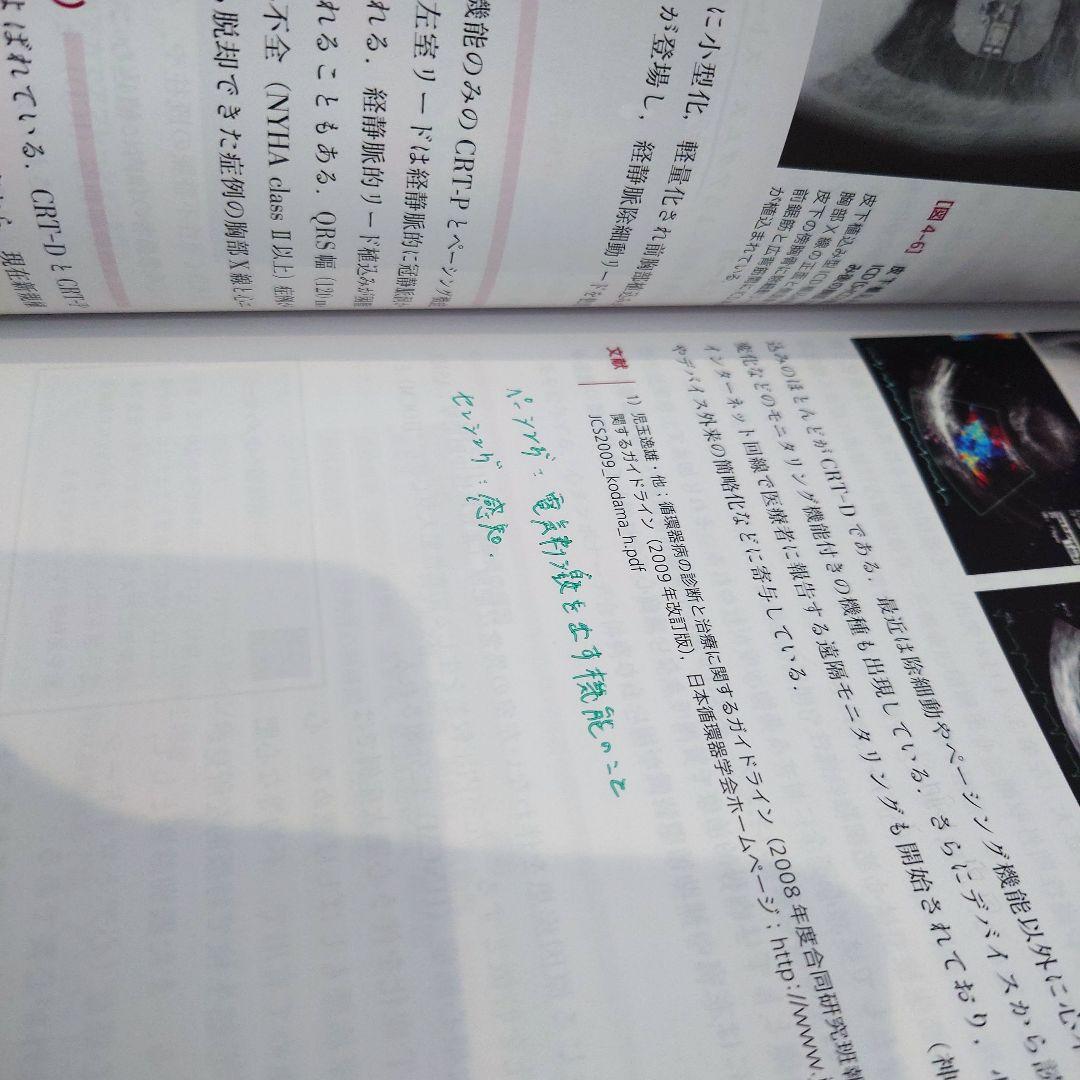 に小型化，軽量化され前胸部
が登場し，経静脈除細動リード
機能のみのCRT-Pとペーシング
左室リードは経静脈的に冠静脈
れる．経静脈的リード植込みが
れることもある．QRS幅（120
不全（NYHA class Ⅱ以上）症例
脱却できた症例の胸部X線
よばれている．CRT-DとCRT-P
現在
［図4-6］
皮下植込み型ICD
胸部X線の正面
皮下の傍胸骨に
前鋸筋と広背筋
が植込まれている
込みのほとんどがCRT-Dである．最近は除細動やペーシング機能以外に心不
変化などのモニタリング機能付きの機種も出現している．さらにデバイスから
インターネット回線で医療者に報告する遠隔モニタリングも開始されており，
やデバイス外来の簡略化などに寄与している．
（神
文献
1）児玉逸雄・他：循環器病の診断と治療に関するガイドライン（2008年度合同研究班報
関するガイドライン（2009年改訂版），日本循環器学会ホームページ：http://www.j
JCS2009_kodama_h.pdf
ペーシング：電気刺激を出す機能のこと
センシング：感知．